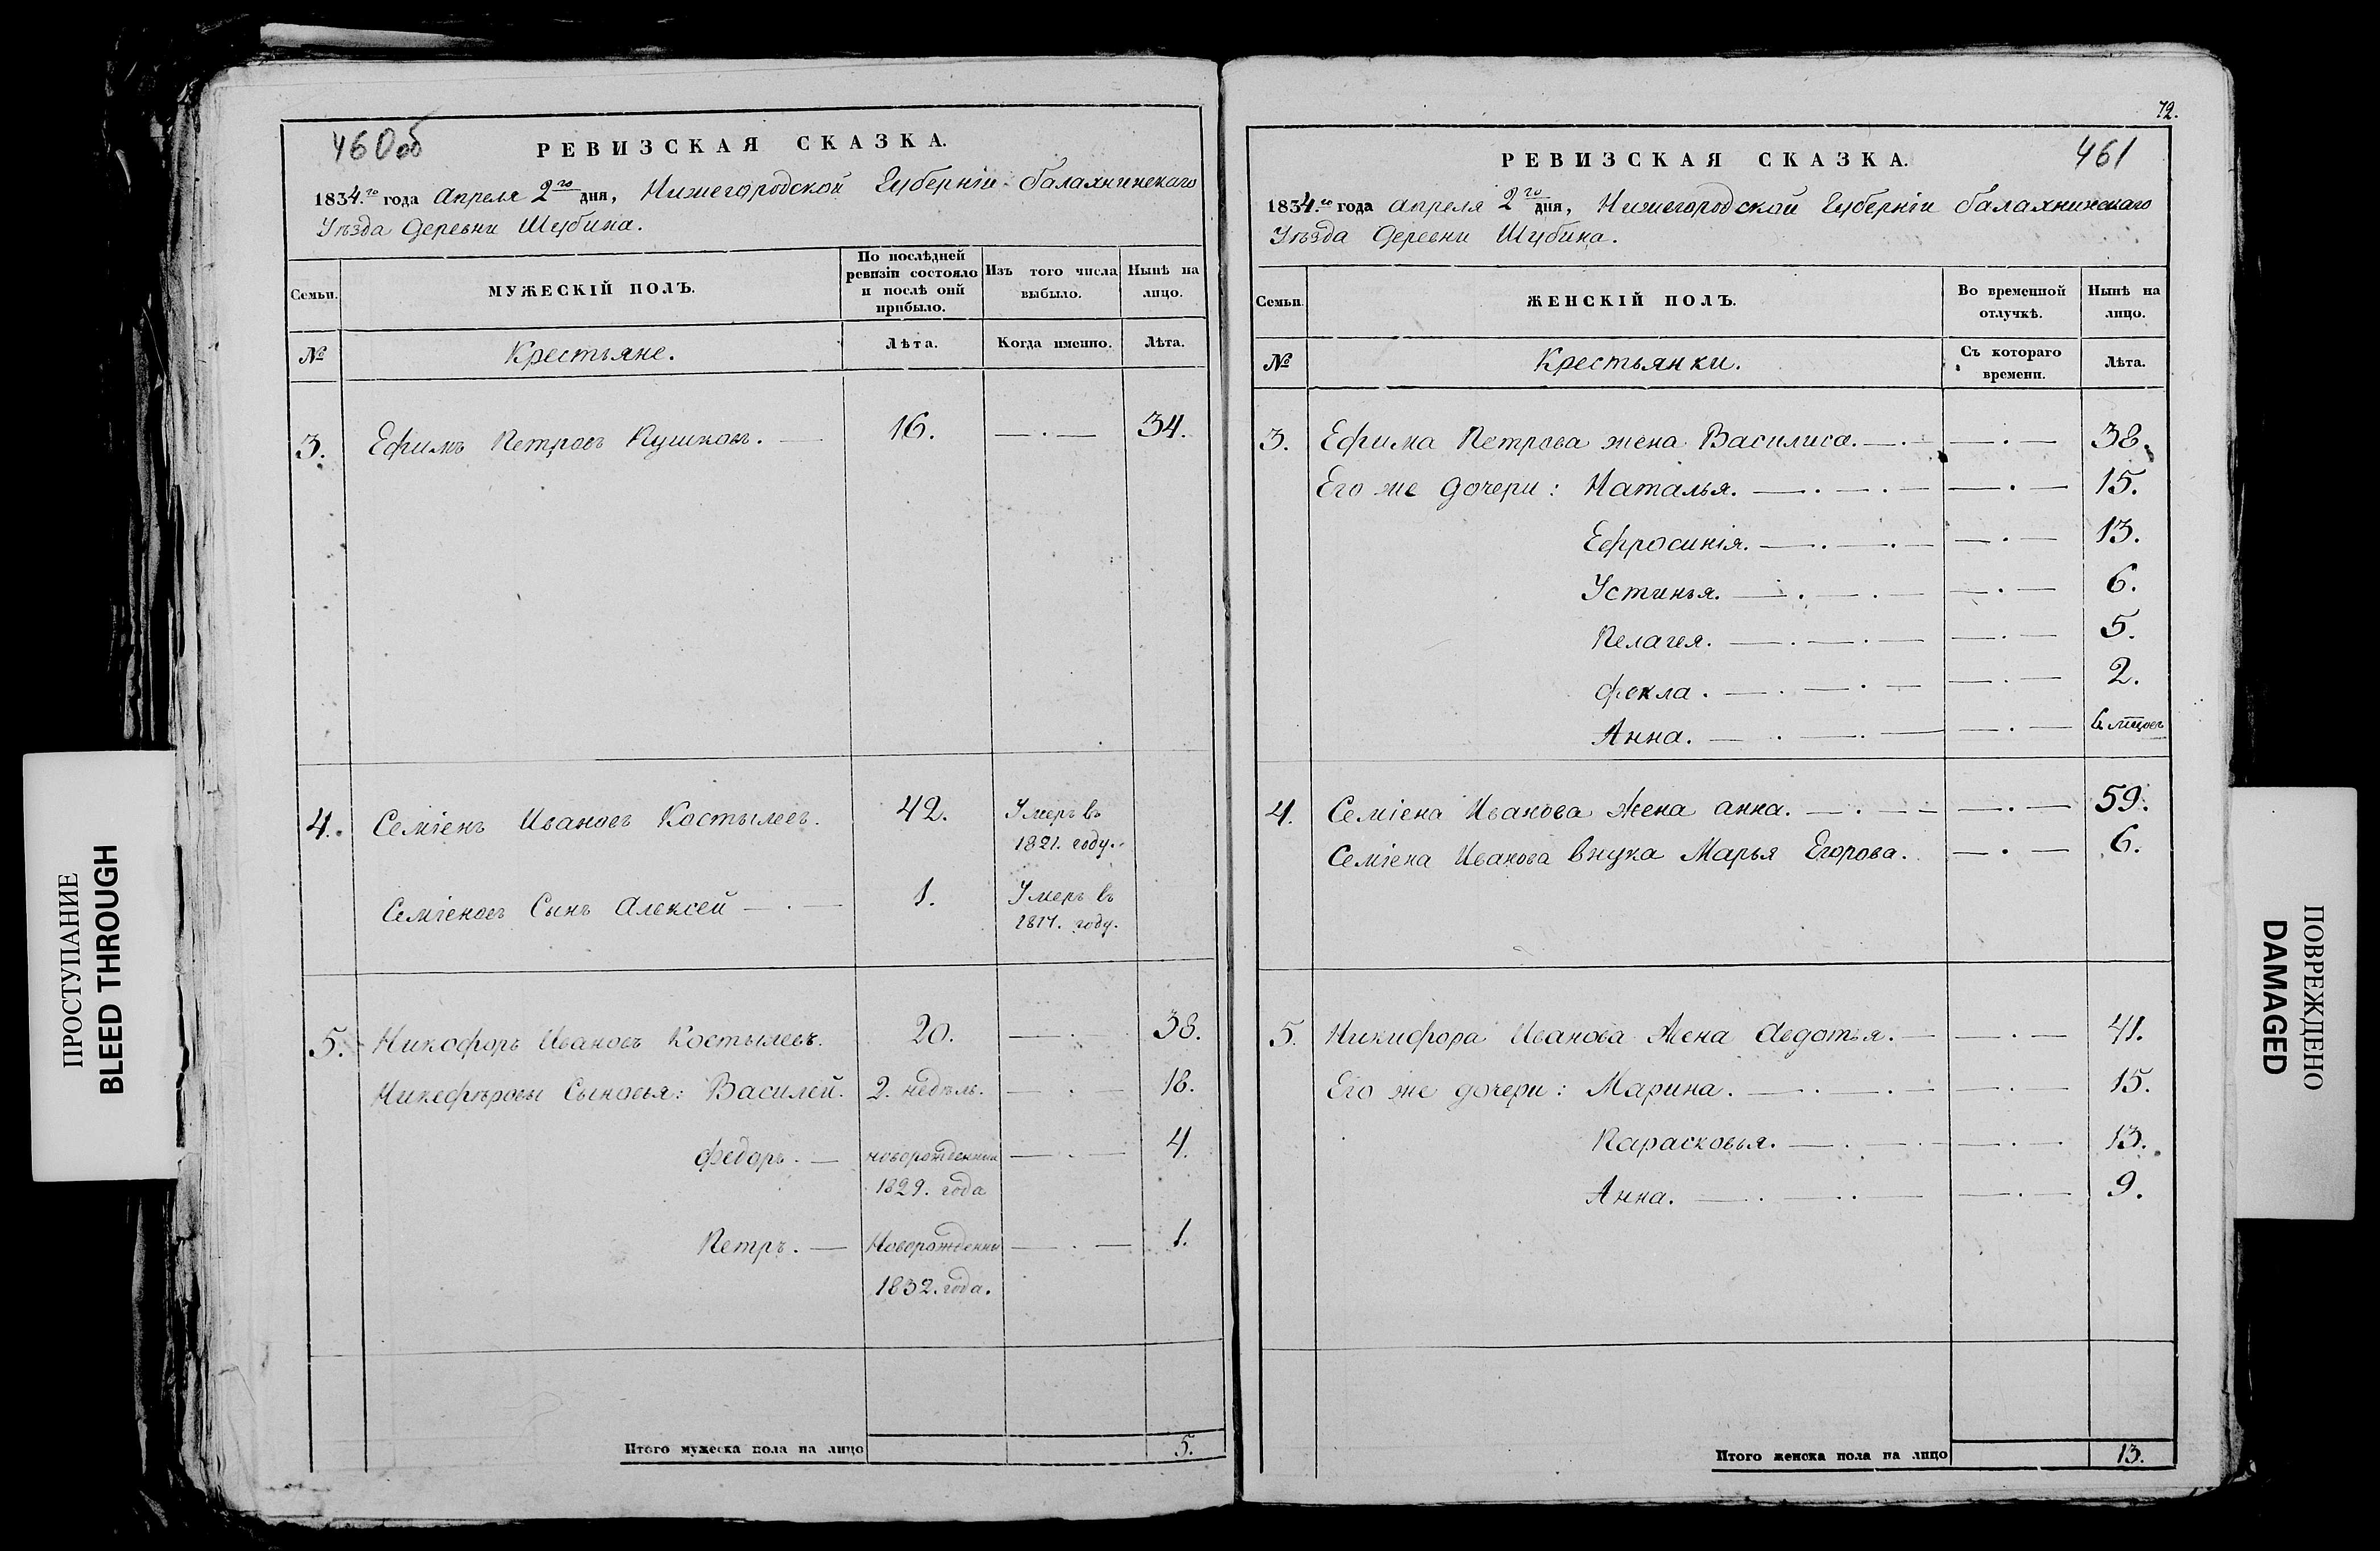 ПРОСТУПАНИЕ
BLEED THROUGH
460об
РЕВИЗСКАЯ СКАЗКА.
1834.го года Апреля 2го дня, Нижегородской Губерніи Балахнинскаго
Уѣзда Деревни Шубина.
Семьи. МУЖЕСКІЙ ПОЛЪ. По послѣдней ревизіи состояло и послѣ оній прибыло. Изъ того числа выбыло. Нынѣ на лицо.
№ Крестьяне. Лѣта. Когда именно. Лѣта.
3. Ефимъ Петровъ Пушков. 16. 34.
4. Семіенъ Ивановъ Костылевъ. 42. Умеръ въ
1821. году.
Семіеновъ Сынъ Алексей 1. Умеръ въ
1817. году.
5. Никофоръ Ивановъ Костылевъ. 20. 38.
Никефъровы Сыновья: Василей. 2. недѣль. 18.
Федоръ. новорожденныи 4.
1829. года
Петръ. Новорожденны 1.
1832. года.
Итого мужеска пола на лицо 5.
72.
461
РЕВИЗСКАЯ СКАЗКА.
1834.го года апреля 2го дня, Нижегородской Губерніи Балахнинскаго
Уѣзда Деревни Шубина.
Семьи. ЖЕНСКІЙ ПОЛЪ. Во временной отлучкѣ. Нынѣ на лицо.
№ Крестьянки. Съ котораго времени. Лѣта.
3. Ефима Петрова жена Василиса. 38.
Его же дочери: Наталья. 15.
Ефросинія. 13.
Устинья. 6.
Пелагея. 5.
Фекла. 2.
Анна. 6
4. Семіена Иванова Жена анна. 59.
Семіена Иванова внука Марья Егорова. 6.
5. Никифора Иванова Жена Авдотья. 41.
Его же дочери: Марина. 15.
Парасковья. 13.
Анна. 9.
Итого женска пола на лицо 13.
ПОВРЕЖДЕНО
DAMAGED